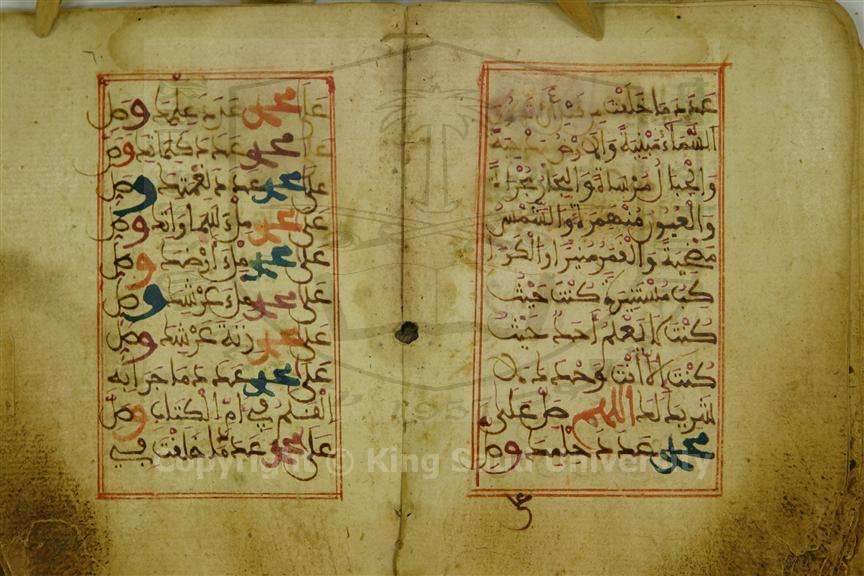 عَدَدَ مَا خَلَقْتَ مِن قَبْلِ أَن تَكُونَ
السَّمَاءُ مَبْنِيَةً وَالأَرْضُ مَدْحِيَةً
وَالْجِبَالُ مُرْسَاةً وَالْبِحَارُ مُجْرَاةً
وَالْعُيُونُ مُنْهَمِرَةً وَالشَّمْسُ
مُضْحِيَةً وَالْقَمَرُ مُنِيرًا وَالْكَوَا
كِبُ مُسْتَنِيرَةً كُنْتَ حَيْثُ
كُنْتَ لَا يَعْلَمُ أَحَدٌ حَيْثُ
كُنْتَ إِلَّا أَنْتَ وَحْدَكَ لَا
شَرِيكَ لَكَ اللهم صَلِّ عَلَى
محمد عَدَدَ حِلْمِكَ وَصَلِّ
عَلَى محمد عَدَدَ عِلْمِكَ وَصَلِّ
عَلَى محمد عَدَدَ كَلِمَاتِكَ وَصَلِّ
عَلَى محمد عَدَدَ نِعْمَتِكَ وَصَلِّ
عَلَى محمد مِلْءَ سَمَاوَاتِكَ وَصَلِّ
عَلَى محمد مِلْءَ أَرْضِكَ وَصَلِّ
عَلَى محمد مِلْءَ عَرْشِكَ وَصَلِّ
عَلَى محمد زِنَةَ عَرْشِكَ وَصَلِّ
عَلَى محمد عَدَدَ مَا جَرَا بِهِ
الْقَلَمُ فِي أُمِّ الْكِتَابِ وَصَلِّ
عَلَى محمد عَدَدَ مَا خَلَقْتَ فِي
Copyright © King Saud University